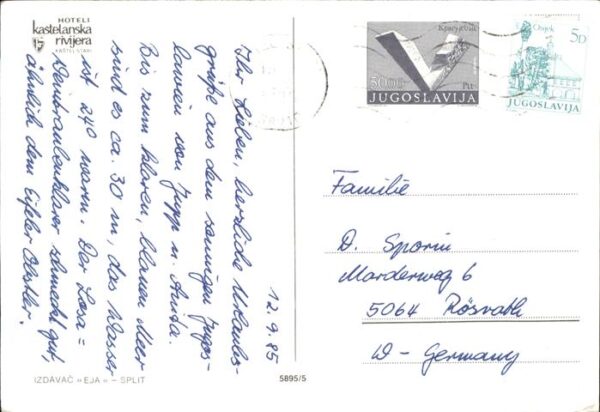 HOTELI
kaštelanska
rivijera
KAŠTEL STARI
12.9.85
Ihr Lieben, herzliche Urlaubs-
grüße aus dem sonnigen Jugos-
lawien von Jupp u. Anita.
Bis zum klaren, blauen Meer
sind es ca. 30 m, das Wasser
ist 24° warm. Der Loza =
Weintraubenklarer schmeckt gut,
ähnlich dem Eifeler Obstler.
5000
JUGOSLAVIJA
Osijek
5D
JUGOSLAVIJA
Familie
D. Sporin
Marderweg 6
5064 Rösrath
W-Germany
IZDAVAČ »EJA« – SPLIT
5895/5